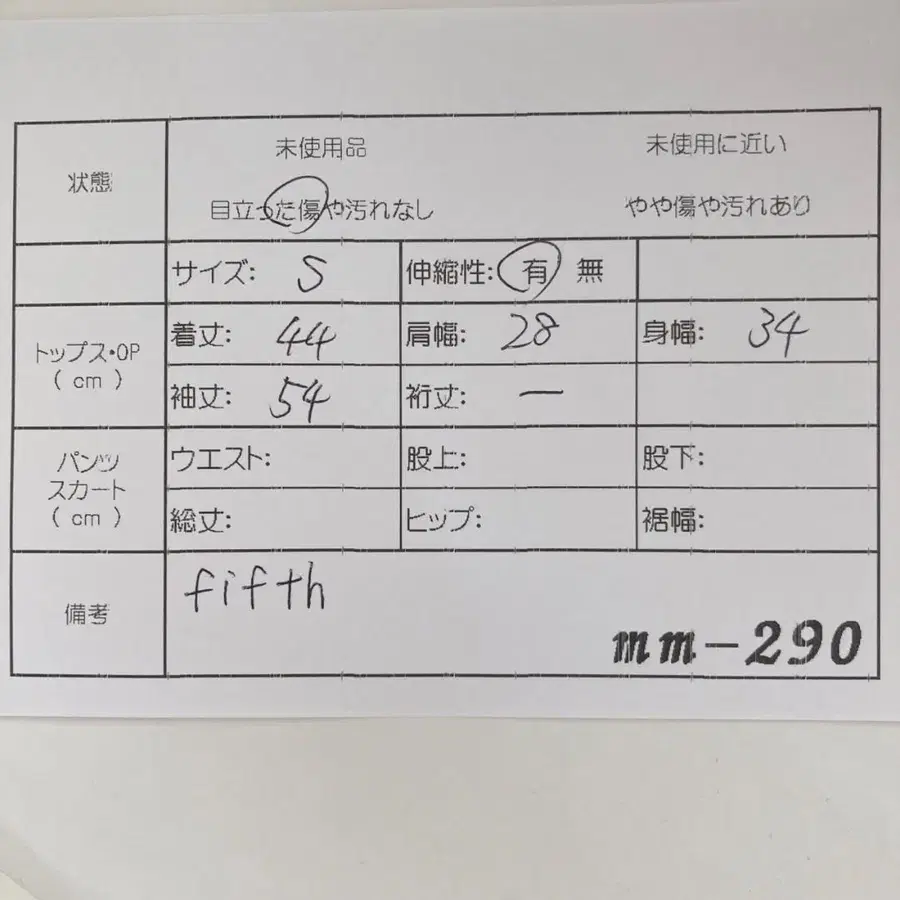 状態
未使用品 未使用に近い
目立った傷や汚れなし やや傷や汚れあり
サイズ: S 伸縮性: 有 無
トップス・OP
( cm )
着丈: 44 肩幅: 28 身幅: 34
袖丈: 54 裄丈: ー
パンツ
スカート
( cm )
ウエスト: 股上: 股下:
総丈: ヒップ: 裾幅:
備考
fifth
mm-290